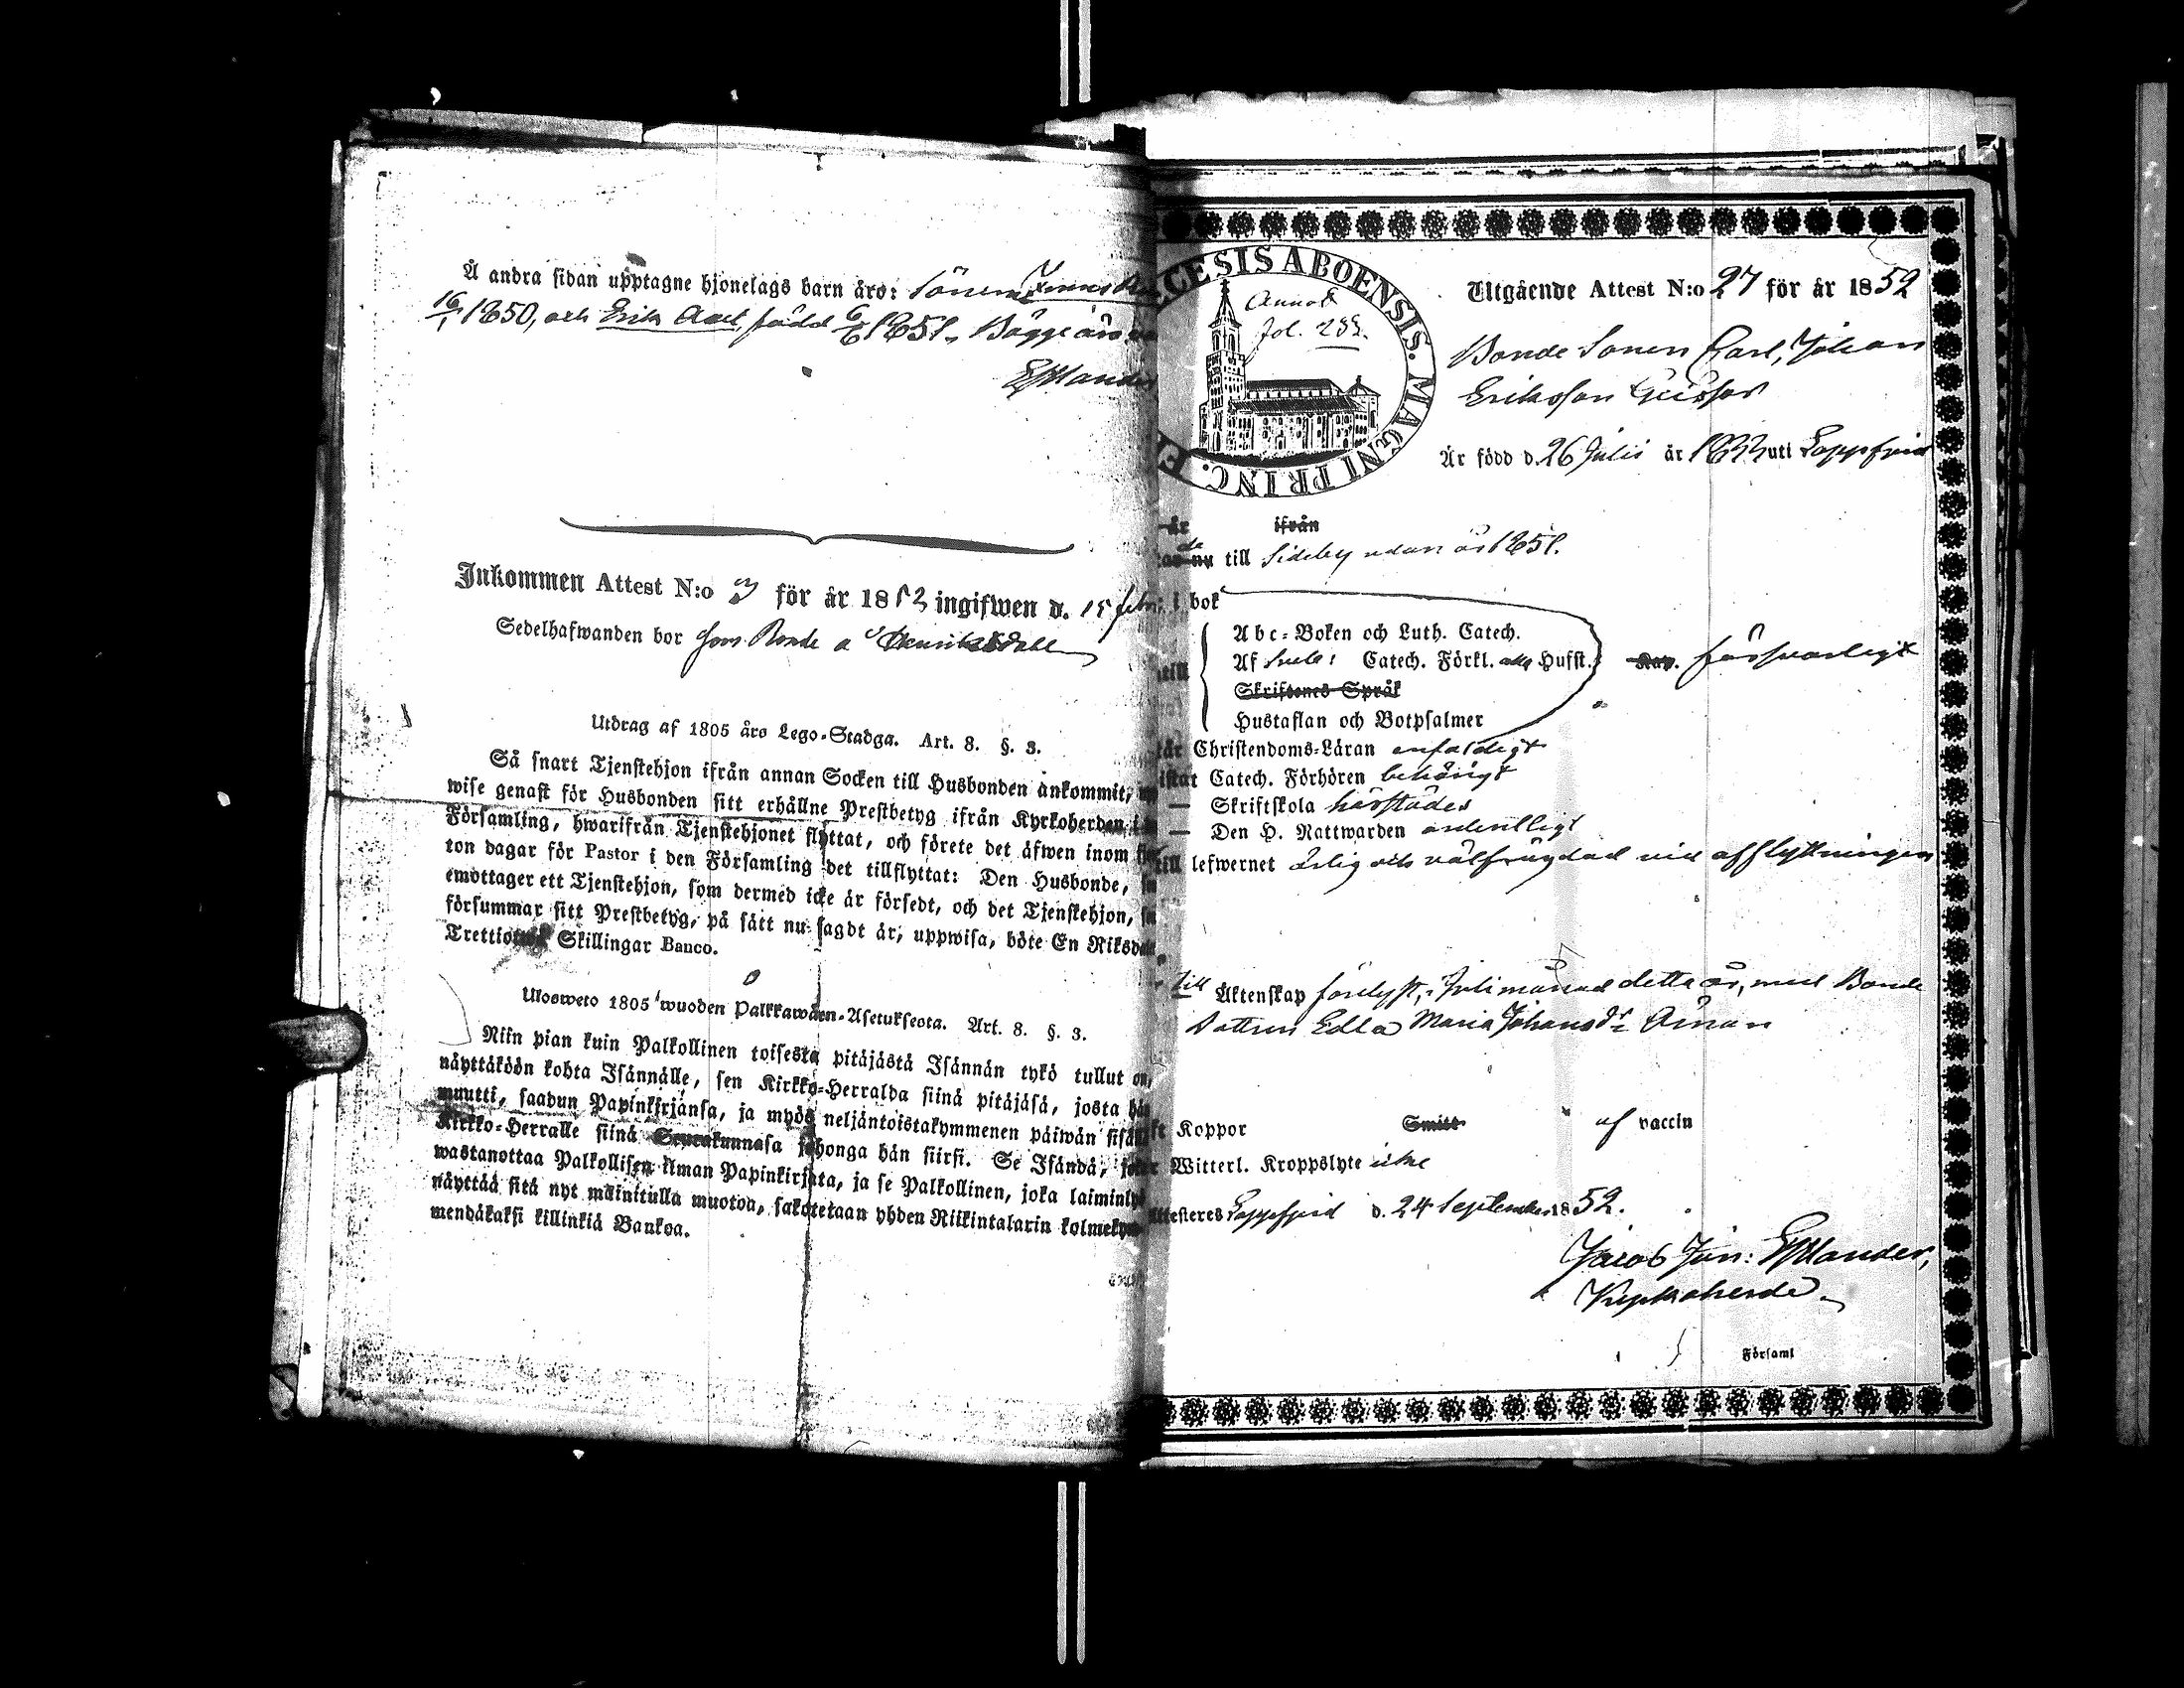 Å andra sidan upptagne hjonelags barn äro: Sönerne
16/1 1850, och Erik Axel, född 6/6 1851. Bägge äro
Inkommen Attest N:o 3 för år 1853 ingifwen d. 15 febr:
Sedelhafwanden bor som Bonde a Henriksdahl
Utdrag af 1805 års Lego-Stadga. Art. 8. §. 3.
Så snart Tjenstehjon ifrån annan Socken till Husbonden ankommit,
wise genast för Husbonden sitt erhållne Prestbetyg ifrån Kyrkoherden i
Församling, hwarifrån Tjenstehjonet flyttat, och förete det äfwen inom
ton dagar för Pastor i den Församling det tillflyttat: Den Husbonde,
emottager ett Tjenstehjon, som dermed icke är försedt, och det Tjenstehjon,
försummar sitt Prestbetyg, på sätt nu sagdt är, uppwisa, böte En Riksdal
Skillingar Banco.
Ulosweto 1805 wuoden Palkkawäen-Asetuksesta. Art. 8. §. 3.
Niin pian kuin Palkollinen toisesta pitäjästä Isännän tykö tullut on,
näyttäköön kohta Isännälle, sen Kirkko-Herralda siinä pitäjäsä, josta hän
muutti, saadun Papinkirjansa, ja myös neljäntoistakymmenen päiwän sisäl
Kirkko-Herralle siinä Seurakunnasa johonga hän siirsi. Se Isändä, joka
wastanottaa Palkollisen ilman Papinkirjata, ja se Palkollinen, joka laiminly
näyttää sitä nyt mainitulla muotoa, sakotetaan yhden Riikintalarin kolmekym
mendäkaksi killinkiä Bankoa.
ECESIS ABOENSIS. MAGNI PRINC. F
Annot
fol. 255.
Utgående Attest N:o 27 för år 1852
Bonde Sonen Carl, Johan
Eriksson
Är född d. 26 Julii år 1833 uti Lappfjerd
år ifrån
de nu till Sideby redan år 1851.
i bok
Abc-Boken och Luth. Catech.
Af Sveb: Catech. Förkl. alla Hufst.
försvarligt
Skriftenes Språk
Hustaflan och Botpsalmer
Christendoms-Läran enfaldigt
Catech. Förhören behörigt
— Skriftskola härstädes
— Den H. Nattwarden ordentligt
till lefwernet ärlig och välfrägdad vid afflyttningen
till Äktenskap förelyst, i Julimånad detta år, med Bonde
Dottren Edla Maria Johansdr
Koppor Smitt af vaccin
Witterl. Kroppslyte icke
Attesteres Lappfjerd d. 24 September 1852.
Jacob Jon:
Kyrkoherde.
Församl